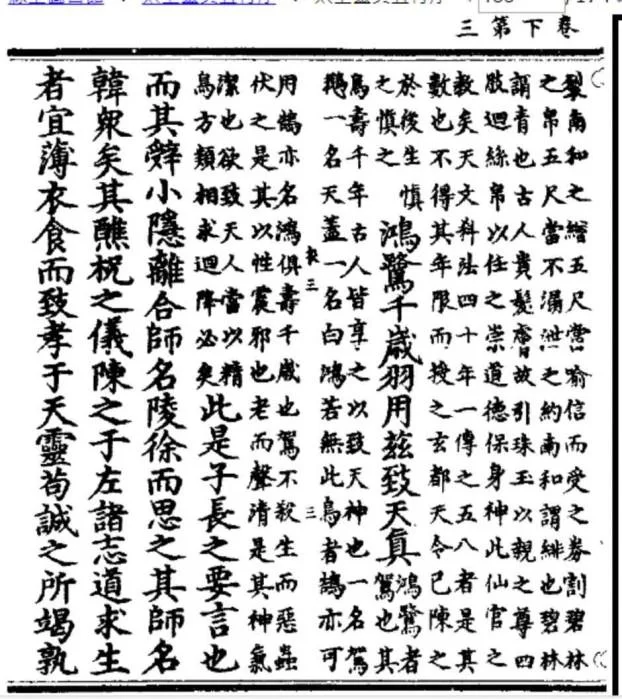 卷下第三
裂南和之繒五尺當喻信而受之券割碧林
之帛五尺當不漏泄之約南和謂緋也碧林
謂青也古人貴髮膚故引珠玉以親之尊四
肢迴絲帛以任之崇道德保身神此仙官之
教矣天文科法四十年一傳之五八者是其
數也不得其年限而授之玄都天令已陳之
於後生慎
之慎之
鴻鷺千歲羽用茲致天真
鴻鷺者
鴛也其
鳥壽千年古人皆享之以致天神也一名鴛
鵝一名天蓋一名白鴻若無此鳥者鵠亦可
三
三
用鵠亦名鴻俱壽千歲也鴛不殺生而惡蟲
伏之是其以性震邪也老而聲清是其神氣
潔也欲致天人當以精
鳥方類相求迴降必矣
此是子長之要言也
而其辭小隱離合師名陵徐而思之其師名
韓眾矣其醮祝之儀陳之于左諸志道求生
者宜薄衣食而致孝于天靈苟誠之所竭孰